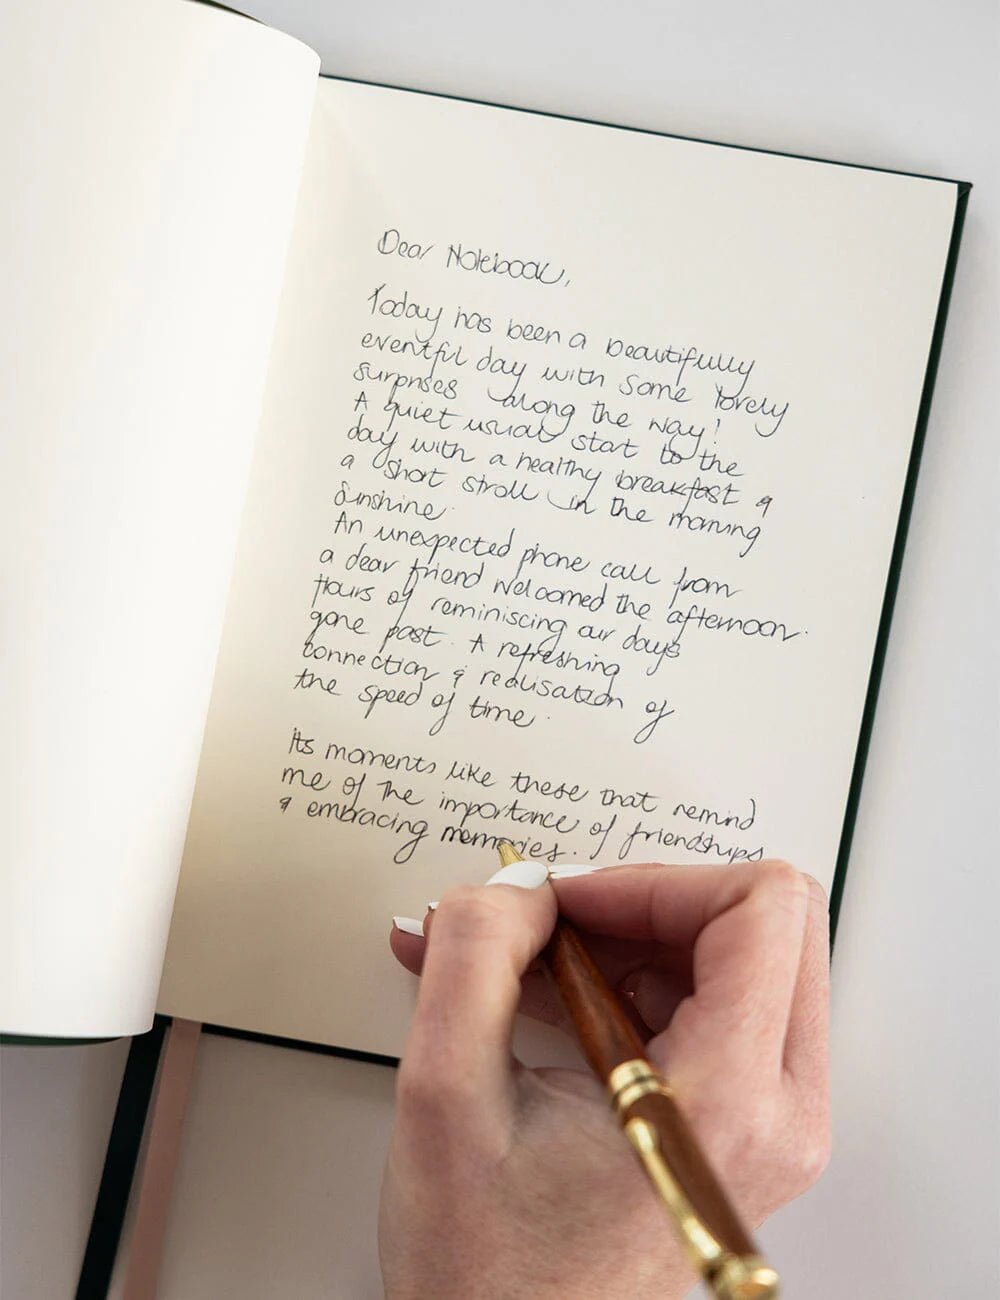 Dear Notebook,
Today has been a beautifully
eventful day with some lovely
surprises along the way!
A quiet usual start to the
day with a healthy breakfast &
a short stroll in the morning
sunshine.
An unexpected phone call from
a dear friend welcomed the afternoon.
Hours of reminiscing our days
gone past. A refreshing
connection & realisation of
the speed of time.
Its moments like these that remind
me of the importance of friendships
& embracing memories.